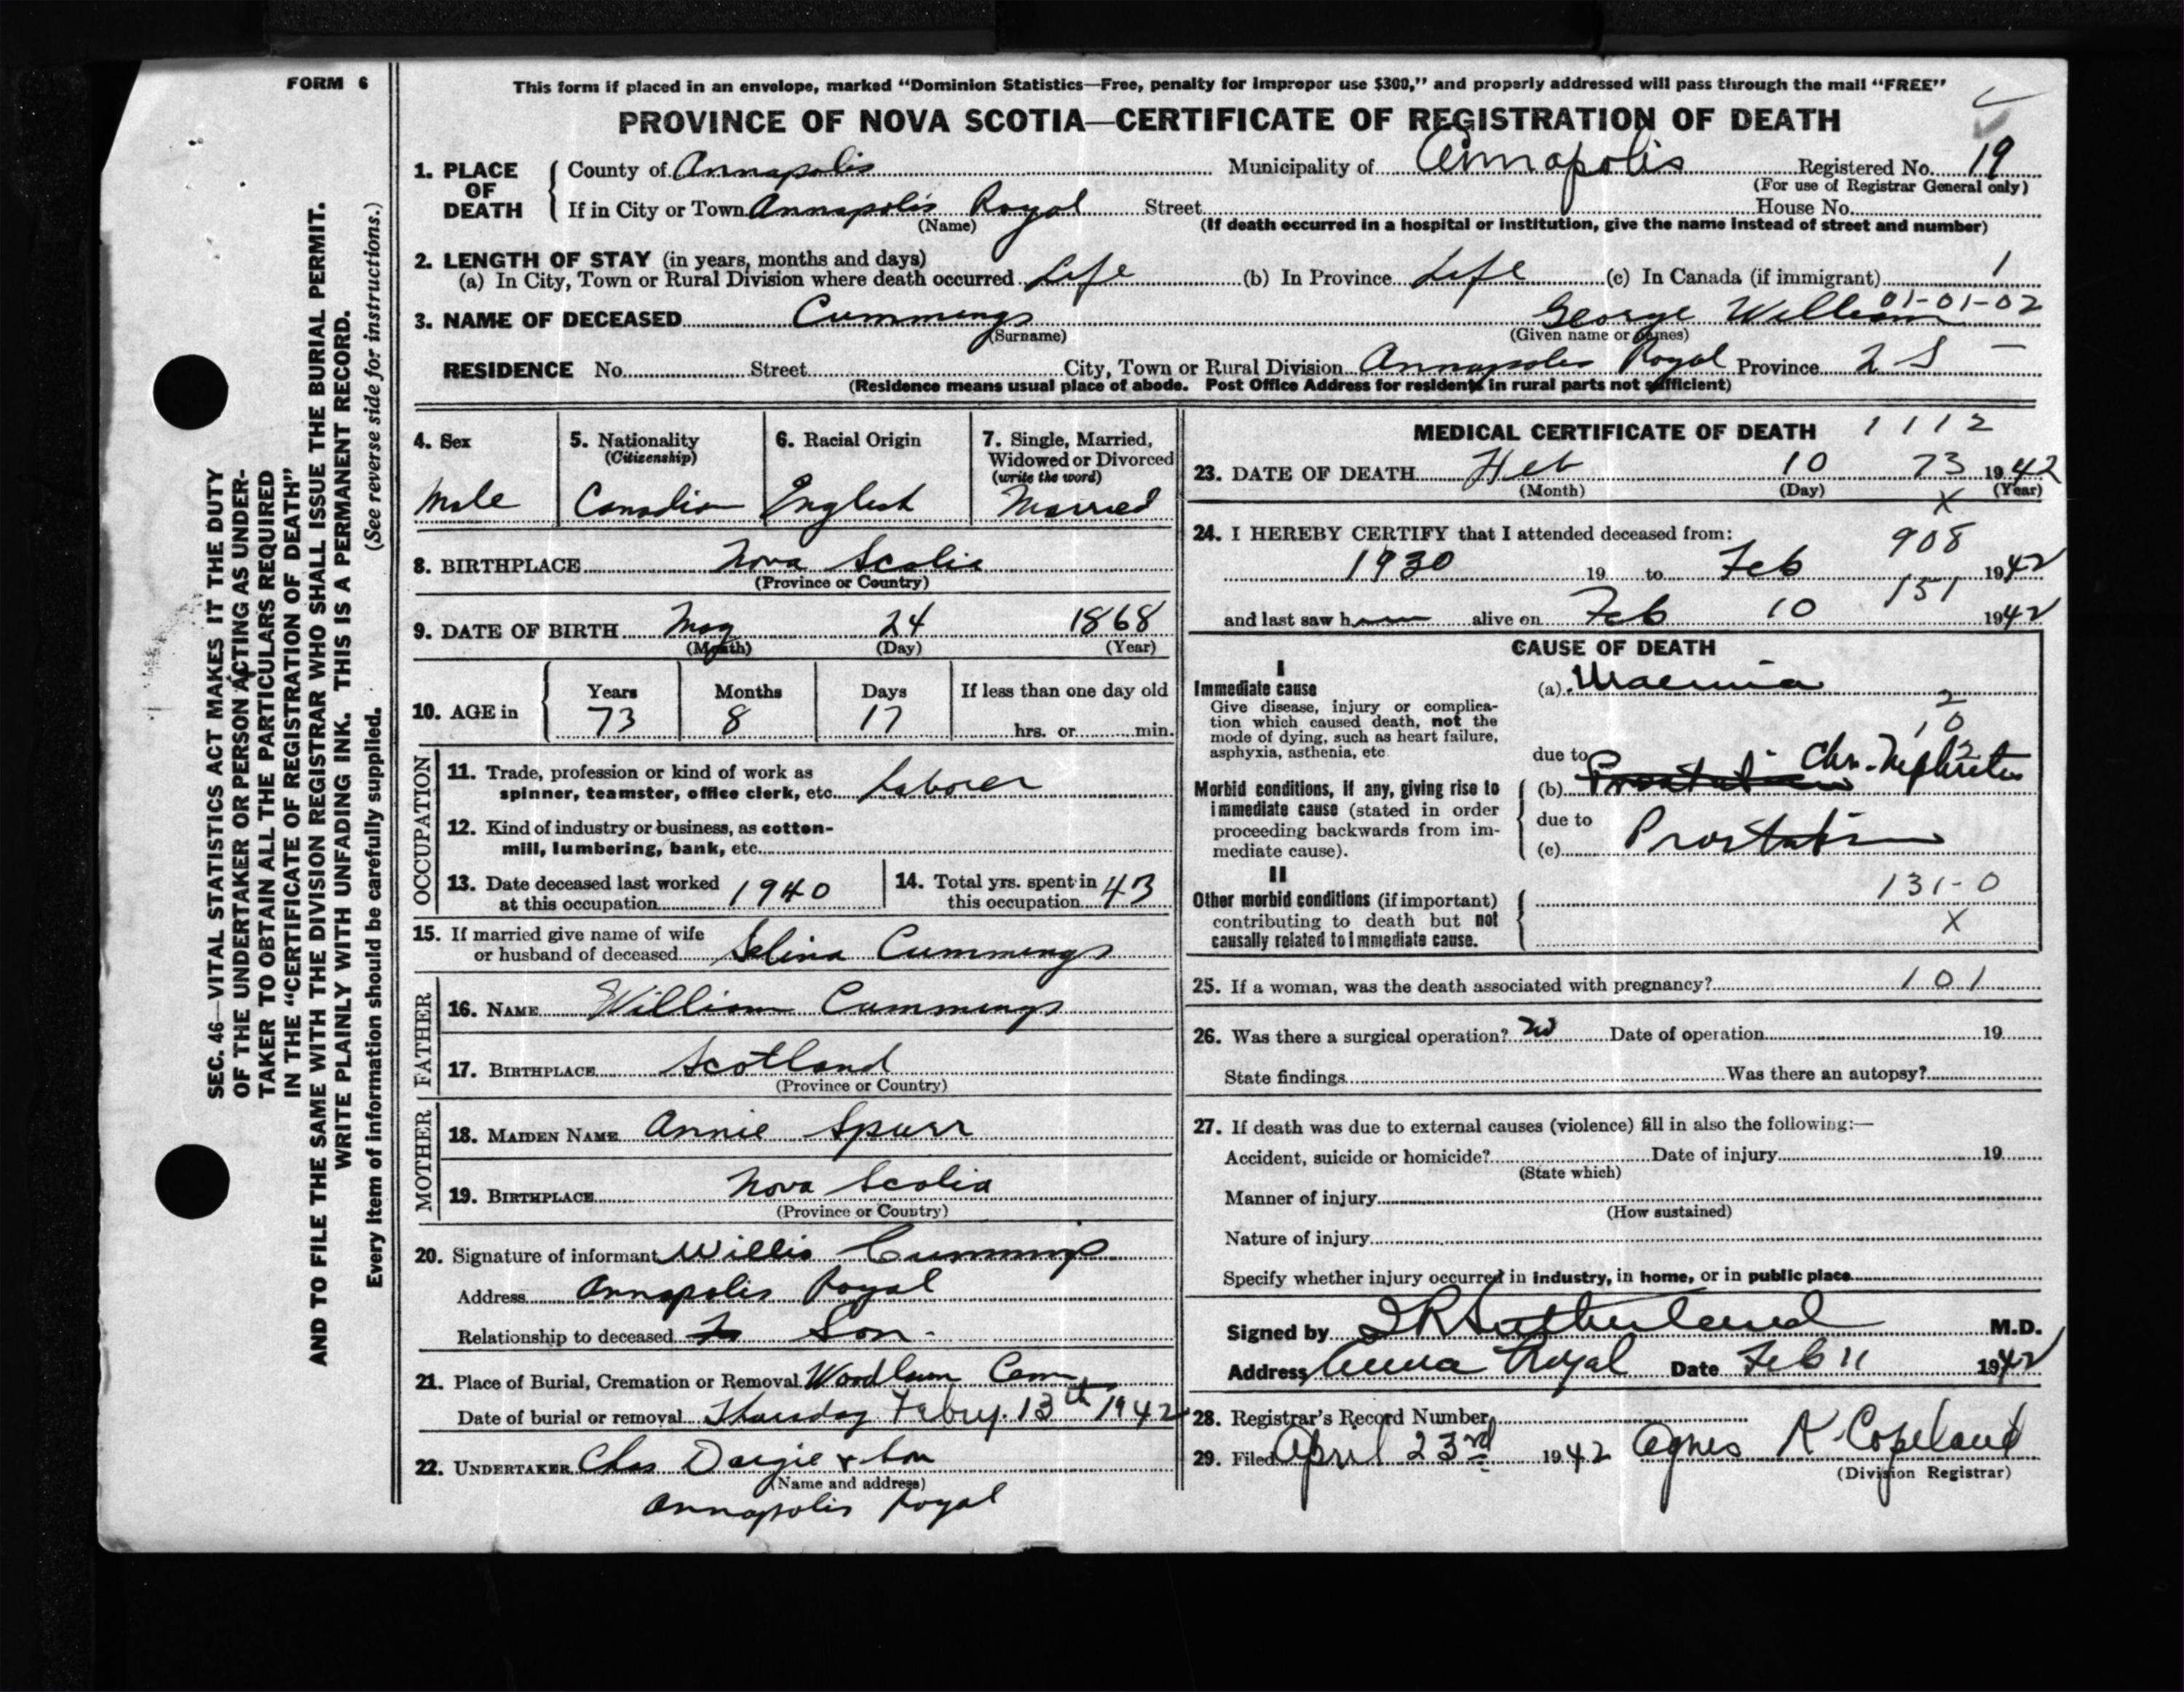 FORM 6
This form if placed in an envelope, marked “Dominion Statistics—Free, penalty for improper use $300,” and properly addressed will pass through the mail “FREE”
PROVINCE OF NOVA SCOTIA—CERTIFICATE OF REGISTRATION OF DEATH
1. PLACE OF DEATH County of Annapolis Municipality of Annapolis Registered No. 19
(For use of Registrar General only)
If in City or Town Annapolis Royal Street House No.
(Name) (If death occurred in a hospital or institution, give the name instead of street and number)
2. LENGTH OF STAY (in years, months and days)
(a) In City, Town or Rural Division where death occurred Life (b) In Province Life (c) In Canada (if immigrant) 1
01-01-02
3. NAME OF DECEASED Cummings George William
(Surname) (Given name or names)
RESIDENCE No. Street City, Town or Rural Division Annapolis Royal Province 2 S —
(Residence means usual place of abode. Post Office Address for residents in rural parts not sufficient)
4. Sex
Male
5. Nationality
(Citizenship)
Canadian
6. Racial Origin
English
7. Single, Married,
Widowed or Divorced
(write the word)
Married
8. BIRTHPLACE Nova Scotia
(Province or Country)
9. DATE OF BIRTH May 24 1868
(Month) (Day) (Year)
10. AGE in Years Months Days If less than one day old
73 8 17 hrs. or min.
OCCUPATION
11. Trade, profession or kind of work as
spinner, teamster, office clerk, etc. Laborer
12. Kind of industry or business, as cotton-
mill, lumbering, bank, etc.
13. Date deceased last worked
at this occupation 1940
14. Total yrs. spent in
this occupation 43
15. If married give name of wife
or husband of deceased Selina Cummings
FATHER
16. NAME William Cummings
17. BIRTHPLACE Scotland
(Province or Country)
MOTHER
18. MAIDEN NAME Annie Spurr
19. BIRTHPLACE Nova Scotia
(Province or Country)
20. Signature of informant Willis Cummings
Address Annapolis Royal
Relationship to deceased Son.
21. Place of Burial, Cremation or Removal Woodlawn Cem
Date of burial or removal Thursday Febry. 13th 1942
22. UNDERTAKER Chas Dargie & Son
(Name and address)
Annapolis Royal
MEDICAL CERTIFICATE OF DEATH 1112
23. DATE OF DEATH Feb 10 73 1942
(Month) (Day) (Year)
X
24. I HEREBY CERTIFY that I attended deceased from:
908
1930 19 to Feb 1942
151
and last saw him alive on Feb 10 1942
CAUSE OF DEATH
I
Immediate cause
Give disease, injury or complica-
tion which caused death, not the
mode of dying, such as heart failure,
asphyxia, asthenia, etc.
(a) Uraemia
2
10
2
due to Chr. Nephritis
Morbid conditions, if any, giving rise to
immediate cause (stated in order
proceeding backwards from im-
mediate cause).
(b)
due to
(c) Prostatism
II
Other morbid conditions (if important)
contributing to death but not
causally related to immediate cause.
131-0
X
25. If a woman, was the death associated with pregnancy? 101
26. Was there a surgical operation? no Date of operation 19
State findings Was there an autopsy?
27. If death was due to external causes (violence) fill in also the following:—
Accident, suicide or homicide? Date of injury 19
(State which)
Manner of injury
(How sustained)
Nature of injury
Specify whether injury occurred in industry, in home, or in public place
Signed by Sutherland M.D.
Address Anna Royal Date Feb 11 1942
28. Registrar's Record Number
29. Filed April 23rd 1942 Agnes K Copeland
(Division Registrar)
SEC. 46—VITAL STATISTICS ACT MAKES IT THE DUTY
OF THE UNDERTAKER OR PERSON ACTING AS UNDER-
TAKER TO OBTAIN ALL THE PARTICULARS REQUIRED
IN THE “CERTIFICATE OF REGISTRATION OF DEATH”
AND TO FILE THE SAME WITH THE DIVISION REGISTRAR WHO SHALL ISSUE THE BURIAL PERMIT.
WRITE PLAINLY WITH UNFADING INK. THIS IS A PERMANENT RECORD.
Every item of information should be carefully supplied. (See reverse side for instructions.)